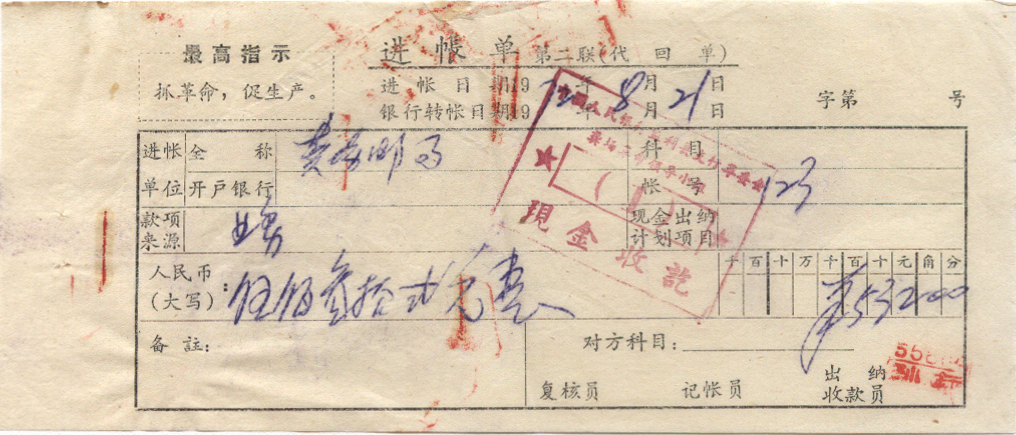 最高指示
抓革命，促生产。
进帐单 第二联(代回单)
进帐日期19 72年8月21日
银行转帐日期19 年 月 日
字第 号
进帐单位
全称
开户银行
科目
帐号 123
款项来源
现金出纳计划项目
人民币(大写)：伍佰叁拾弍元整
千百十万千百十元角分
¥53200
备註：
对方科目：
复核员 记帐员 出纳收款员
現金收訖